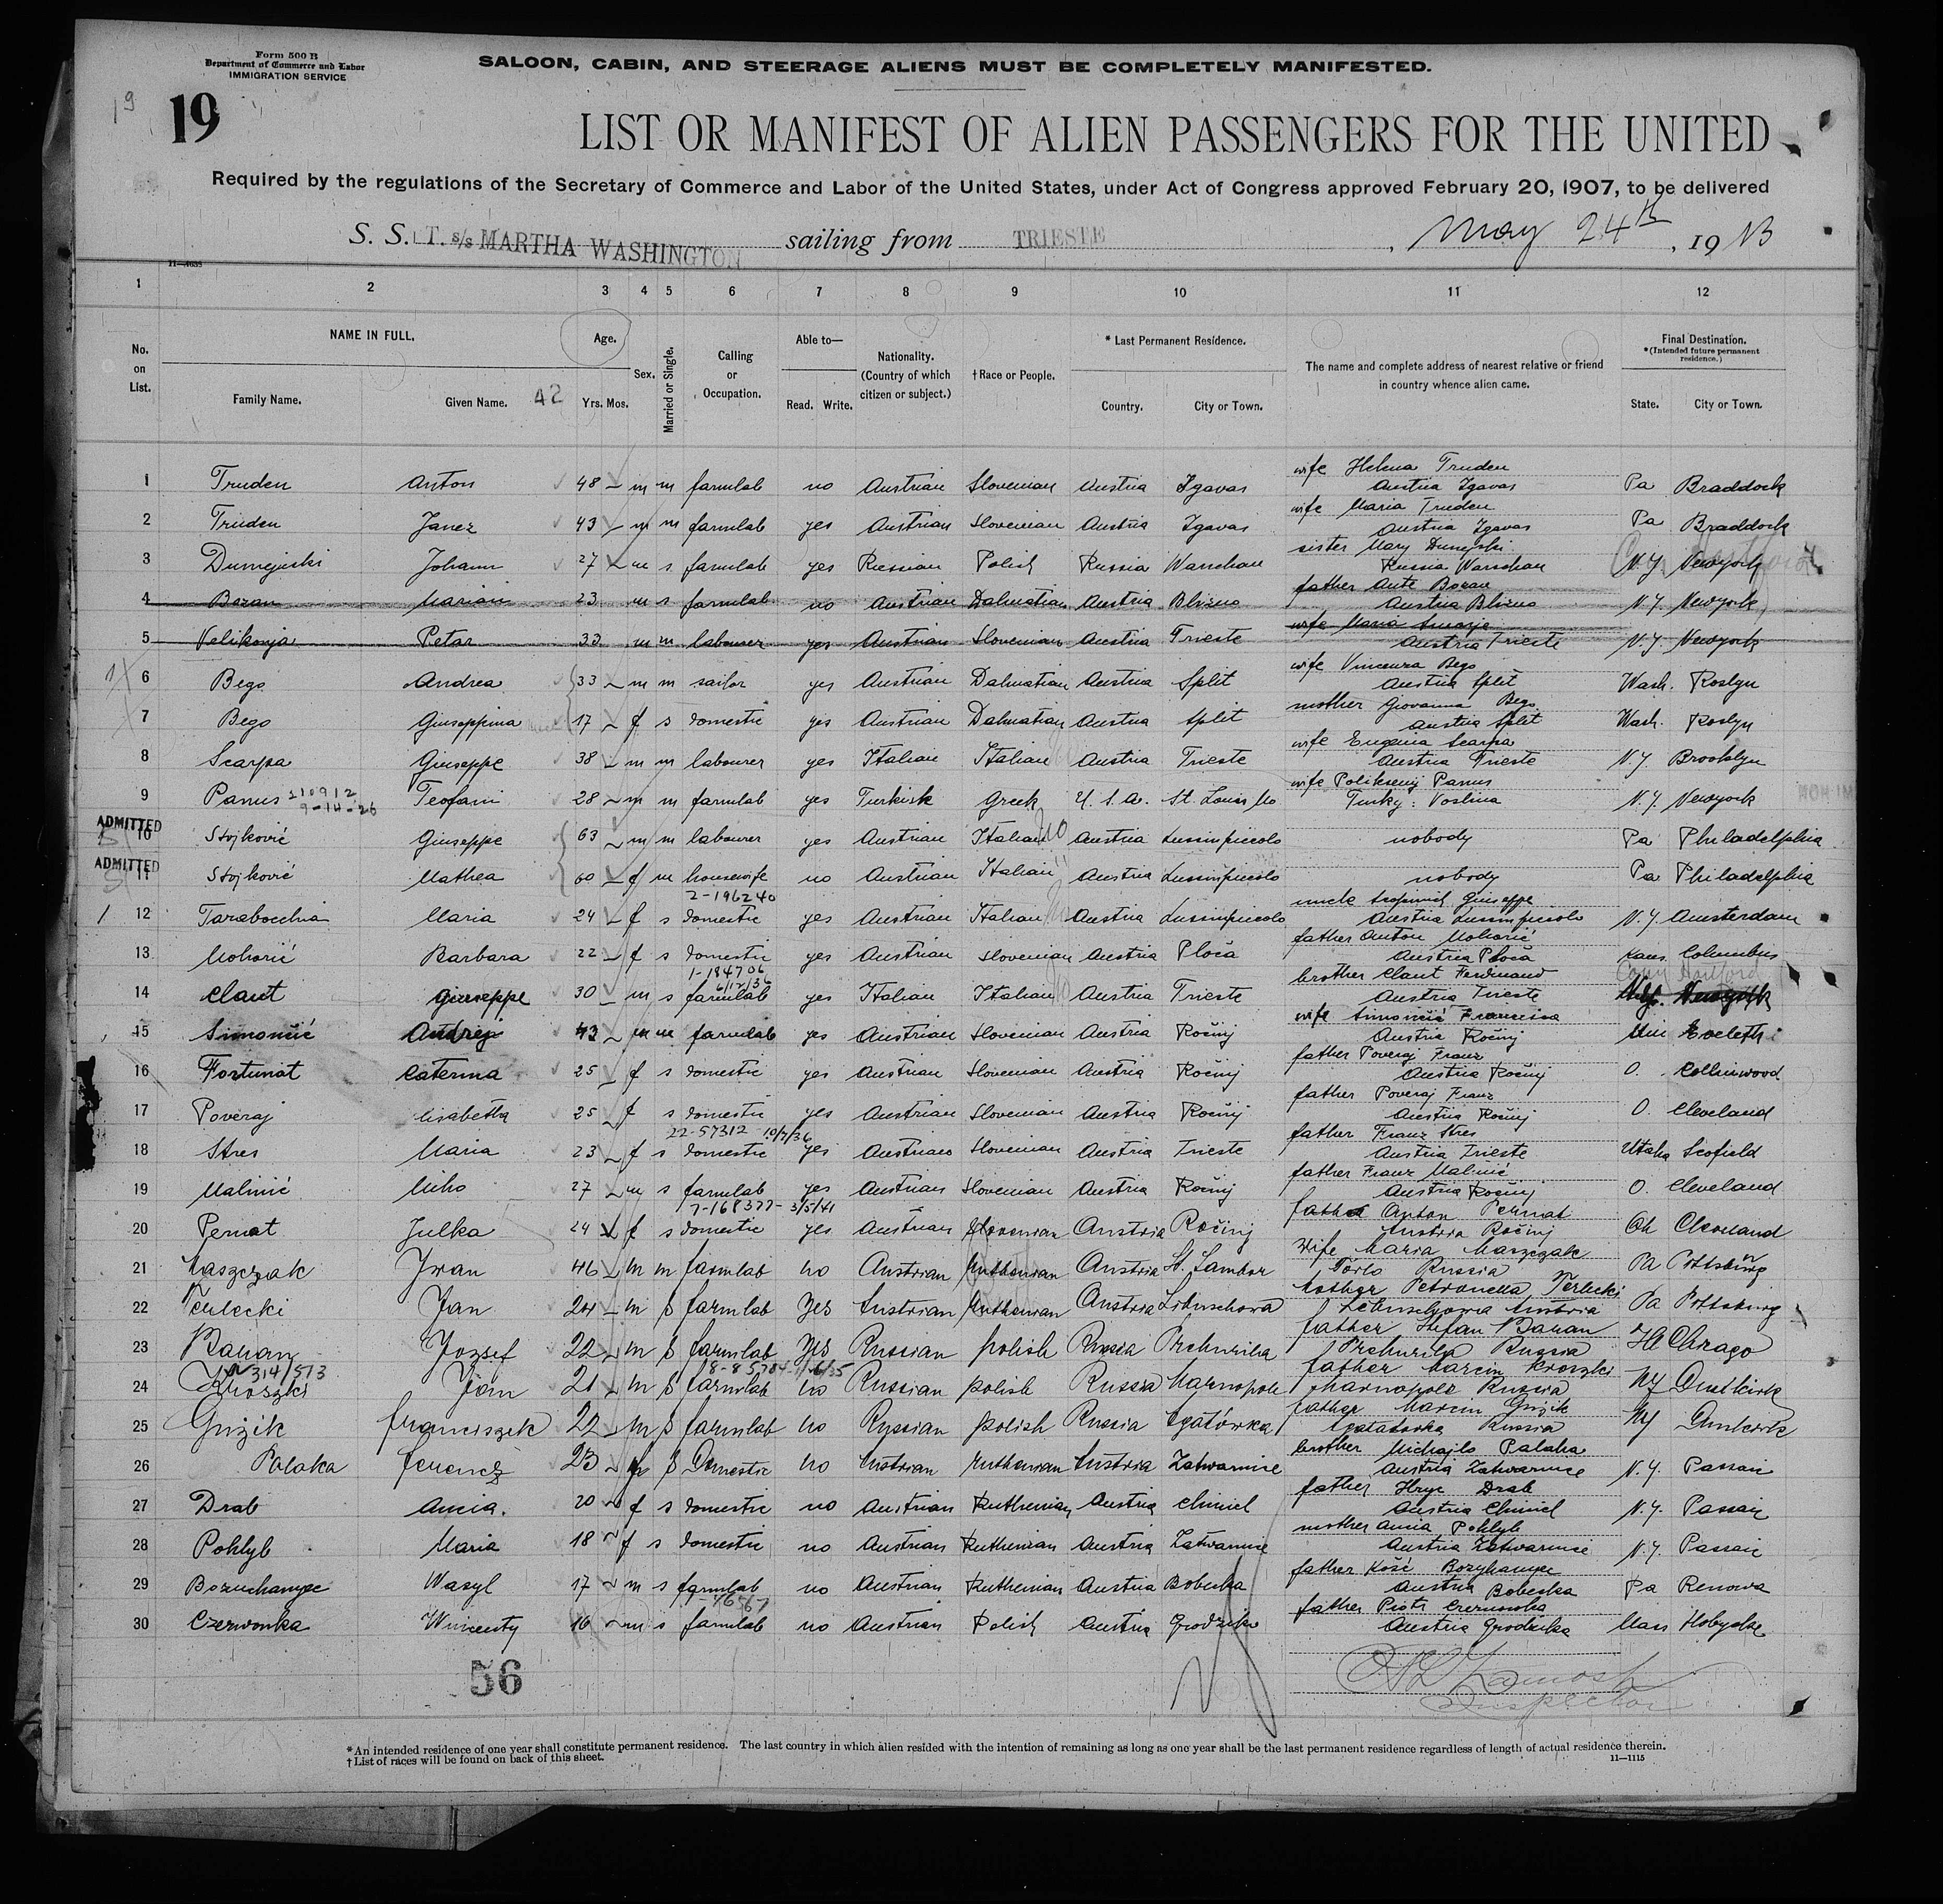 Form 500 B
Department of Commerce and Labor
IMMIGRATION SERVICE
SALOON, CABIN, AND STEERAGE ALIENS MUST BE COMPLETELY MANIFESTED.
19
19
LIST OR MANIFEST OF ALIEN PASSENGERS FOR THE UNITED
Required by the regulations of the Secretary of Commerce and Labor of the United States, under Act of Congress approved February 20, 1907, to be delivered
S. S. T. s/s MARTHA WASHINGTON sailing from TRIESTE, May 24th, 1913
11—4638
1 2 3 4 5 6 7 8 9 10 11 12
No. on List.
NAME IN FULL.
Family Name. Given Name. 42
Age.
Yrs. Mos.
Sex.
Married or Single.
Calling or Occupation.
Able to—
Read. Write.
Nationality. (Country of which citizen or subject.)
†Race or People.
* Last Permanent Residence.
Country. City or Town.
The name and complete address of nearest relative or friend in country whence alien came.
Final Destination.
*(Intended future permanent residence.)
State. City or Town.
1 Truden Anton 48 m m farmlab no Austrian Slovenian Austria Igavas wife Helena Truden Austria Igavas Pa Braddock
2 Truden Janez 43 m m farmlab yes Austrian Slovenian Austria Igavas wife Maria Truden Austria Igavas Pa Braddock
3 Johann 27 m s farmlab yes Russian Polish Russia Warschau sister Mary Russia Warschau N.Y. Newyork
4 Bozan Marian 23 m s farmlab no Austrian Dalmatian Austria Blizno father Ante Bozan Austria Blizno N.Y. Newyork
5 Velikonja Petar 33 m m labourer yes Austrian Slovenian Austria Trieste wife Maria Austria Trieste N.Y. Newyork
6 Bego Andrea 33 m m sailor yes Austrian Dalmatian Austria Split wife Vincenza Bego Austria Split Wash. Roslyn
7 Bego Giuseppina 17 f s domestic yes Austrian Dalmatian Austria Split mother Giovanna Bego Austria Split Wash. Roslyn
8 Scarpa Giuseppe 38 m m labourer yes Italian Italian Austria Trieste wife Eugenia Scarpa Austria Trieste N.Y. Brooklyn
9 Panus 210912 9-14-26 Teofani 28 m m farmlab yes Turkish Greek U.S.A. St. Louis Mo wife Poliksenij Panus Turky: Voslina N.Y. Newyork
ADMITTED
10 Stojković Giuseppe 63 m m labourer yes Austrian Italian Austria Lussinpiccolo nobody Pa Philadelphia
ADMITTED
11 Stojković Mathea 60 f m housewife no Austrian Italian Austria Lussinpiccolo nobody Pa Philadelphia
2-196240
12 Tarabocchia Maria 24 f s domestic yes Austrian Italian Austria Lussinpiccolo uncle Giuseppe Austria Lussinpiccolo N.Y. Amsterdam
13 Mohorić Barbara 22 f s domestic yes Austrian Slovenian Austria Ploča father Anton Mohorić Austria Ploča Kans. Columbus
1-184706 6/12/36
14 Claut Giuseppe 30 m s farmlab yes Italian Italian Austria Trieste brother Claut Ferdinand Austria Trieste Conn Hartford
15 Simončić Andrej 43 m m farmlab yes Austrian Slovenian Austria Ročinj wife Simončić Francesca Austria Ročinj Min Eveleth
16 Fortunat Caterina 25 f s domestic yes Austrian Slovenian Austria Ročinj father Poveraj Franz Austria Ročinj O. Collinwood
17 Poveraj Lisabetha 25 f s domestic yes Austrian Slovenian Austria Ročinj father Poveraj Franz Austria Ročinj O. Cleveland
22-57312 10/7/36
18 Stres Maria 23 f s domestic yes Austrian Slovenian Austria Trieste father Franz Stres Austria Trieste Utaha Scofield
19 Malinić Miho 27 m s farmlab yes Austrian Slovenian Austria Ročinj father Franz Malinić Austria Ročinj O. Cleveland
7-168377- 3/5/41
20 Pernat Julka 24 f s domestic yes Austrian Slovenian Austria Ročinj father Anton Pernat Austria Ročinj Oh Cleveland
21 Maszczak Iwan 46 m m farmlab no Austrian Ruthenian Austria St. Sambor wife Maria Maszczak Russia Pa Pittsburg
22 Terlecki Jan 24 m s farmlab yes Austrian Ruthenian Austria mother Petronella Terlecki Austria Pa Pittsburg
23 Banan Jozsef 22 m s farmlab yes Russian polish Russia father Stefan Banan Russia Ill Chicago
24 Kroszki Jan 21 m s farmlab no Russian polish Russia Marnopole father Marcin Kroszki Marnopole Russia NY Dunkirk
25 Guzik Franciszek 22 m s farmlab no Russian polish Russia father Marcin Guzik Russia NY Dunkirk
26 Palaka Ferencz 23 f s Domestic no Austrian Ruthenian Austria Zatwarnice brother Michajlo Palaka Austria Zatwarnice N.Y. Passaic
27 Drab Ancia. 20 f s domestic no Austrian Ruthenian Austria Chmiel father Hryc Drab Austria Chmiel N.Y. Passaic
28 Pohlyb Maria 18 f s domestic no Austrian Ruthenian Austria Zatwarnice mother Ancia Pohlyb Austria Zatwarnice N.Y. Passaic
29 Wasyl 17 m s farmlab no Austrian Ruthenian Austria Bobeska father Austria Bobeska Pa Renowa
30 Czerwonka Wincenty 16 m s farmlab no Austrian Polish Austria Grodzisko father Piotr Czerwonka Austria Grodziska Mass Holyoke
56
Inspector
*An intended residence of one year shall constitute permanent residence. The last country in which alien resided with the intention of remaining as long as one year shall be the last permanent residence regardless of length of actual residence therein.
†List of races will be found on back of this sheet.
11—1115